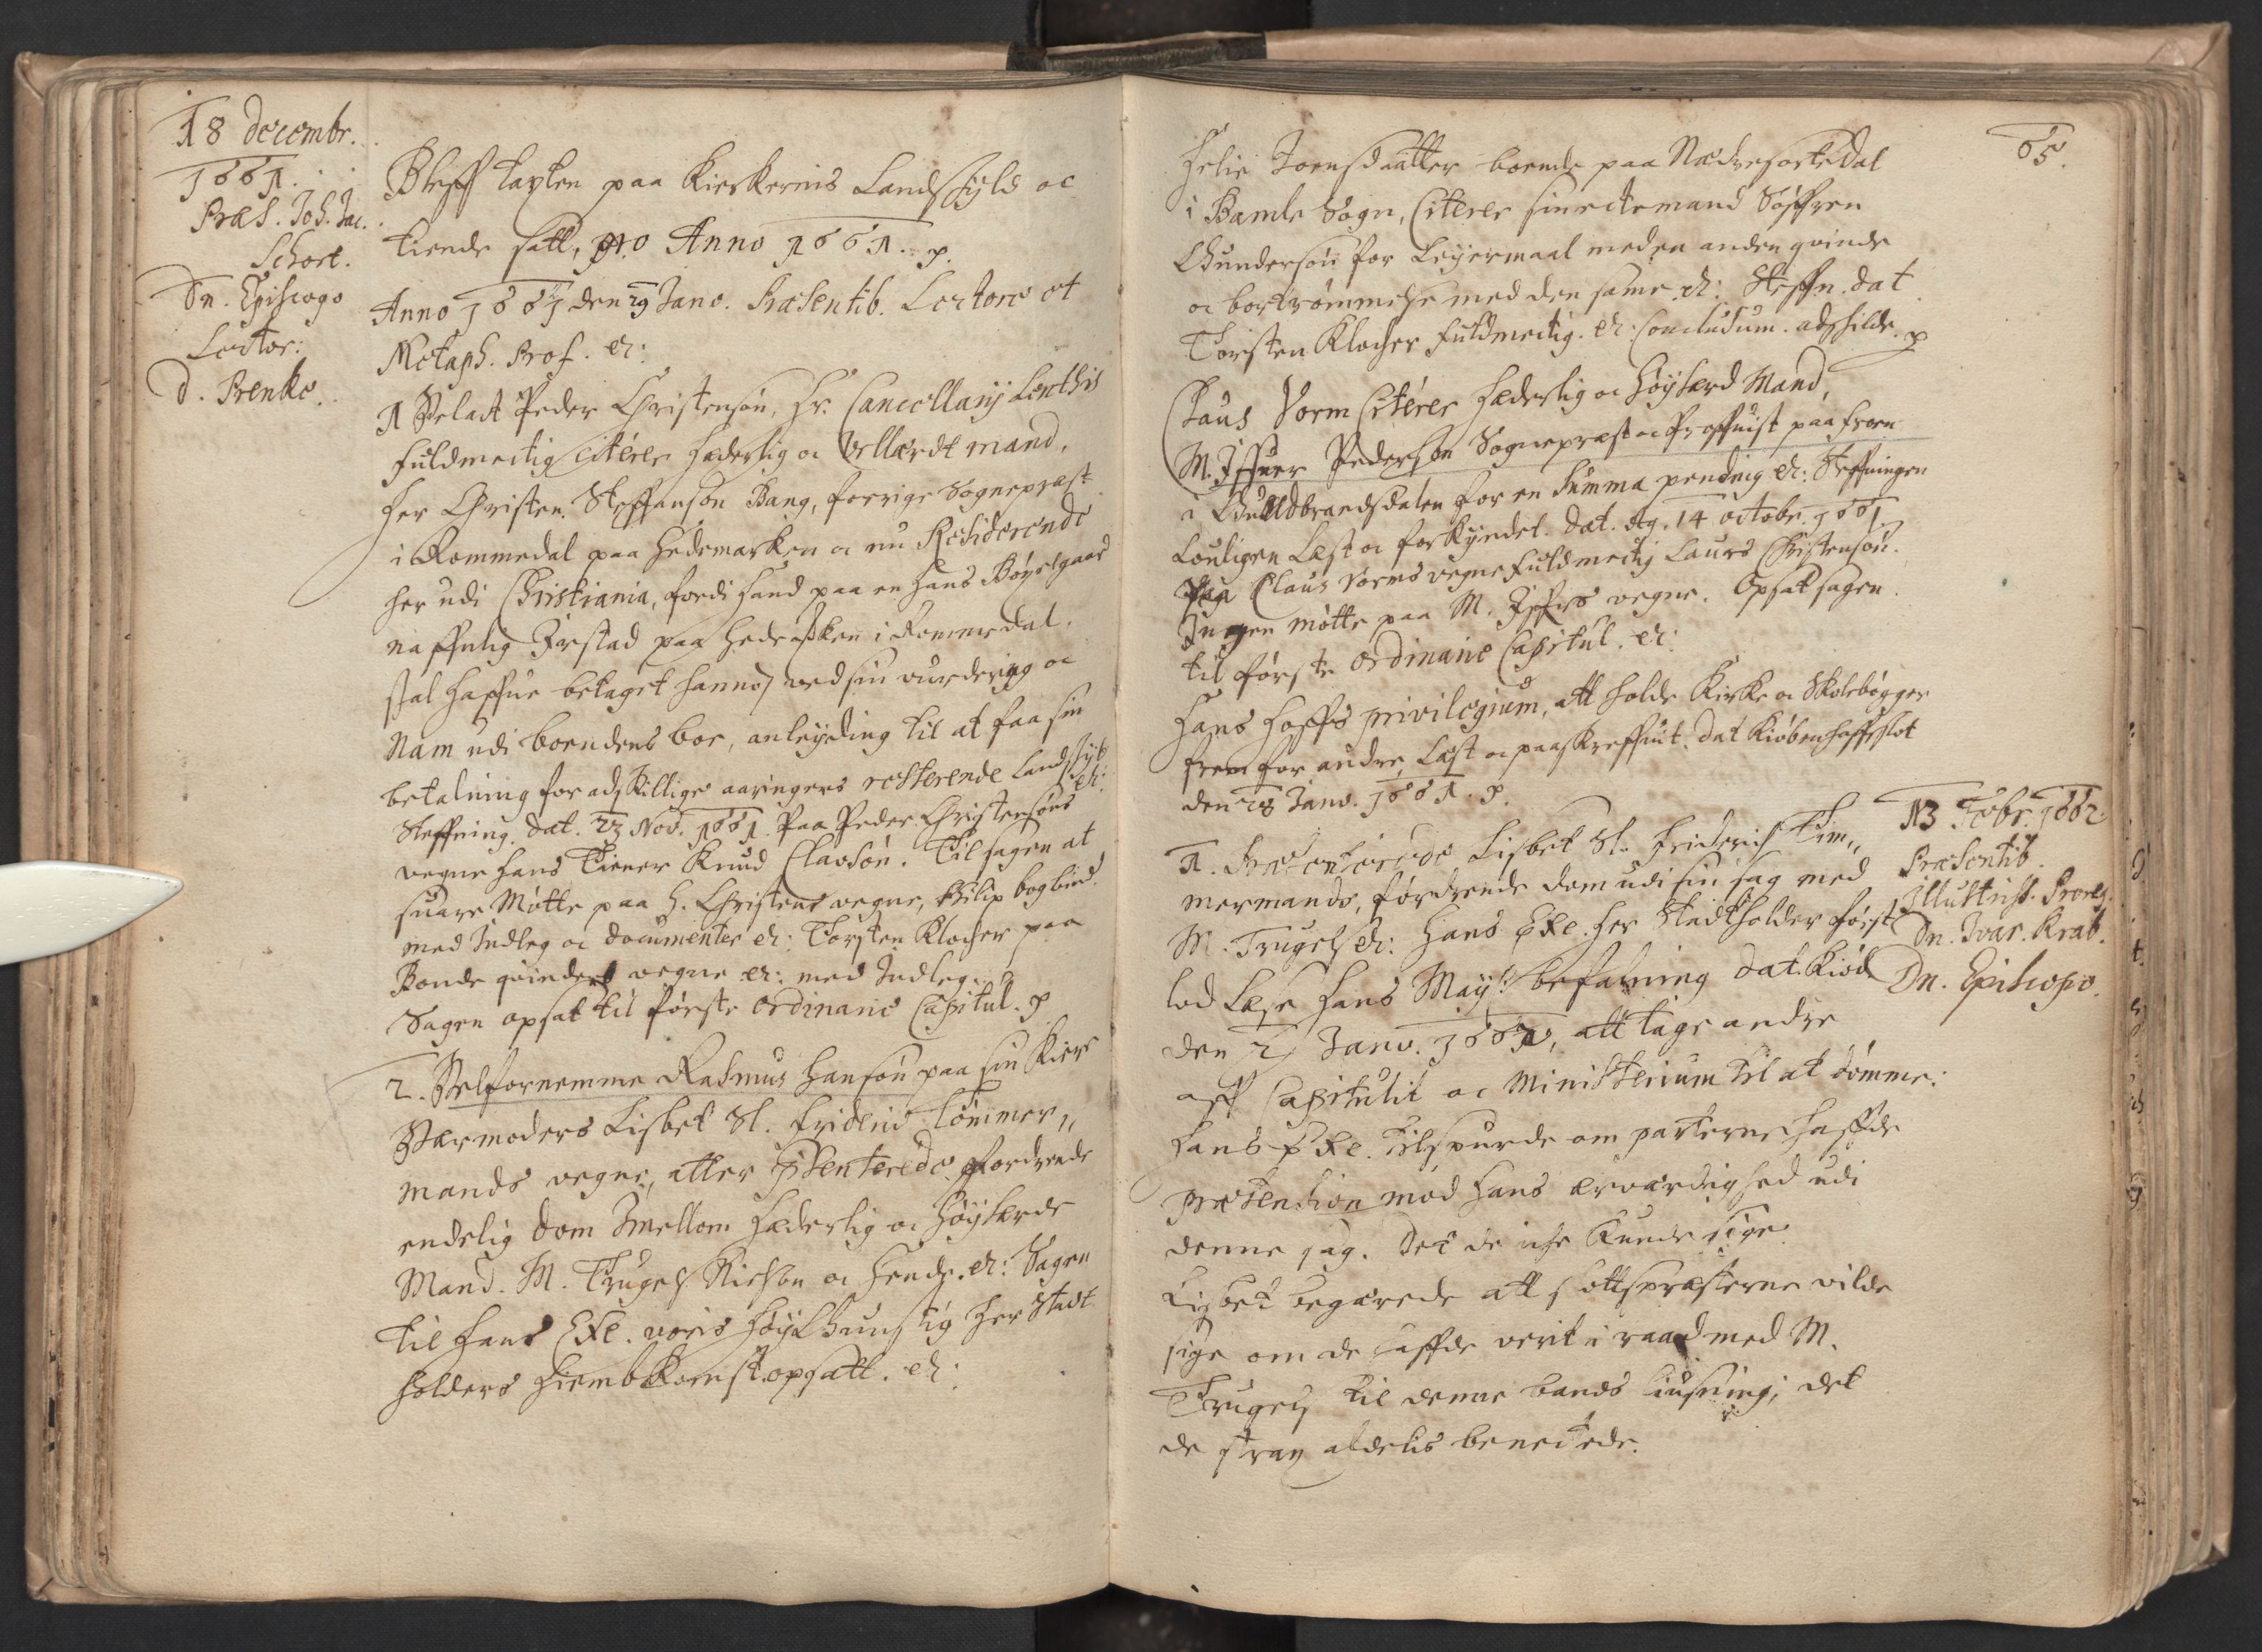 18 decembr.
1661.
Præs. Joh. Jac.
Schort.
Dn. Episcopo
Lector:
D. Brenke.
Bleff taxten paa Kirkernis Landskyld oc
tiende satt, pro Anno 1661. p.
Anno 1662 den 29 Janv. Præsentib. Lectore et
Metaph. Prof. etc:
1 Velact Peder Christensøn, Hr. Cancellarij Lenthis
fuldmectig citerer hæderlig oc Vellærdt mand,
Her Christen Steffensøn Bang, forrige Sognepræst
i Rommedal paa Hedemarken oc nu Residerende
her udi Christiania, fordi hand paa en hans Bøyelgaard
naffnlig Irstad paa Hedemarken i Rommedal.
skal haffue betaget hannd ved sin vurdering oc
Nam udi boendens boe, anleyding til at faa sin
betalning for adskillige aaringers resterende Landskyld
Steffning dat. 23 Nov. 1661. Paa Peder Christensøns etc:
vegne hans Tiener Knud Clavsøn. Til sagen at
suare Møtte paa H. Christens vegne, Philip bogbinder
med Indleg oc documenter etc: Torsten Klocher paa
Bonde qvindens vegne etc: med Indleg.
Sagen opsat til første ordinarie Capitul. p
2. Velfornemme Rasmus Hansøn paa sin Kiere
Værmoders Lisbet Sl. Friderid Tømmer„
mands vegne, atter Præsenterede fordrende
endelig dom Imellom hæderlig oc høylærde
Mand. M. Trugels Nielsøn oc hende. etc: Sagen
til hans Exl. voris høygunstig Her Stadt
holders hiembkomst opsatt. etc:
65.
Helie Joensdaatter boende paa Nedre
i Bamle Sogn, Citerer sin ectemand Søffren
Gundersøn for Leyermaal med en anden qvinde
oc bortrømmelse med den samme etc: Steffn. dat
Torsten Klocher fuldmectig. etc. Conclusum. adskilde. p
Claus Vorm Citerer hæderlig oc høylærd Mand,
M. Iffuer Pedersøn Sognepræst oc Proffuist paa Froen
i Guldbrandsdalen for en Summa pending etc: Steffningen
Louligen Læst oc forkyndet. Dat. Ag. 14 octobr. 1661
Paa Claus Vorms vegne fuldmectig Laurs Christensøn.
Ingen møtte paa M. Iffrs vegne. Opsat sagen
til første ordinarie Capitul. etc:
Hans Hoffs privilegium, att holde Kirke oc Skolebøgger
frem for andre, Læst oc paaskreffuit. dat Kiøbenhaffs slot
den 28 Janv. 1661. p.
13 Febr. 1662.
Præsentib.
Illustriss. Proreg.
Dn. Ivar. Krab.
Dn. Episcopo.
1. Præsenterede Lisbet Sl. Friderich Tim„
mermands, fordrende dom udi sin sag med
M. Trugels etc: Hans Exl. Her Stadtholder først
lod Læse Hans May: befalning dat. Kiød
den 21 Janv. 1662, att tage andre
aff Capitulit oc Ministerium til at dømme.
Hans Exl. tilspurde om parterne haffde
prætension mod Hans ærværdighed udi
denne sag. Det de iche kunde sige.
Lisbet begærede att slottspræsterne vilde
sige om de haffde verit i raad med M.
Trugels til denne bands liusning; det
de strax aldelis benectede.